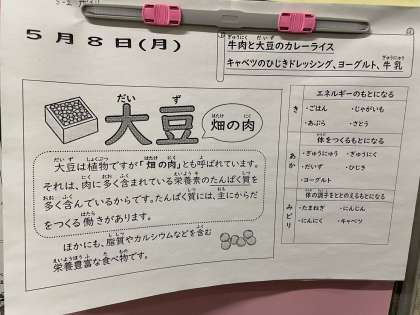 5月8日(月)
牛肉と大豆のカレーライス
キャベツのひじきドレッシング、ヨーグルト、牛乳
大豆
畑の肉
大豆は植物ですが「畑の肉」とも呼ばれています。
それは、肉に多く含まれている栄養素のたんぱく質を
多く含んでいるからです。たんぱく質には、主にからだ
をつくる働きがあります。
ほかにも、脂質やカルシウムなどを含む
栄養豊富な食べ物です。
エネルギーのもとになる
き
・ごはん ・じゃがいも
・あぶら ・さとう
体をつくるもとになる
あか
・ぎゅうにゅう ・ぎゅうにく
・だいず ・ひじき
・ヨーグルト
体の調子をととのえるもとになる
みどり
・たまねぎ ・にんじん
・にんにく ・キャベツ